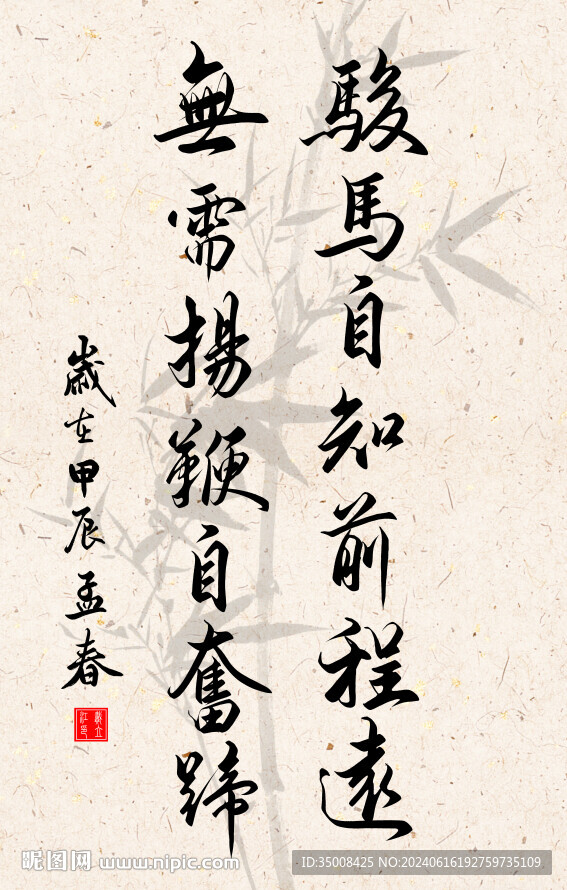 駿馬自知前程遠
無需揚鞭自奮蹄
歲在甲辰孟春
昵图网 www.nipic.com
ID:35008425 NO:20240616192759735109